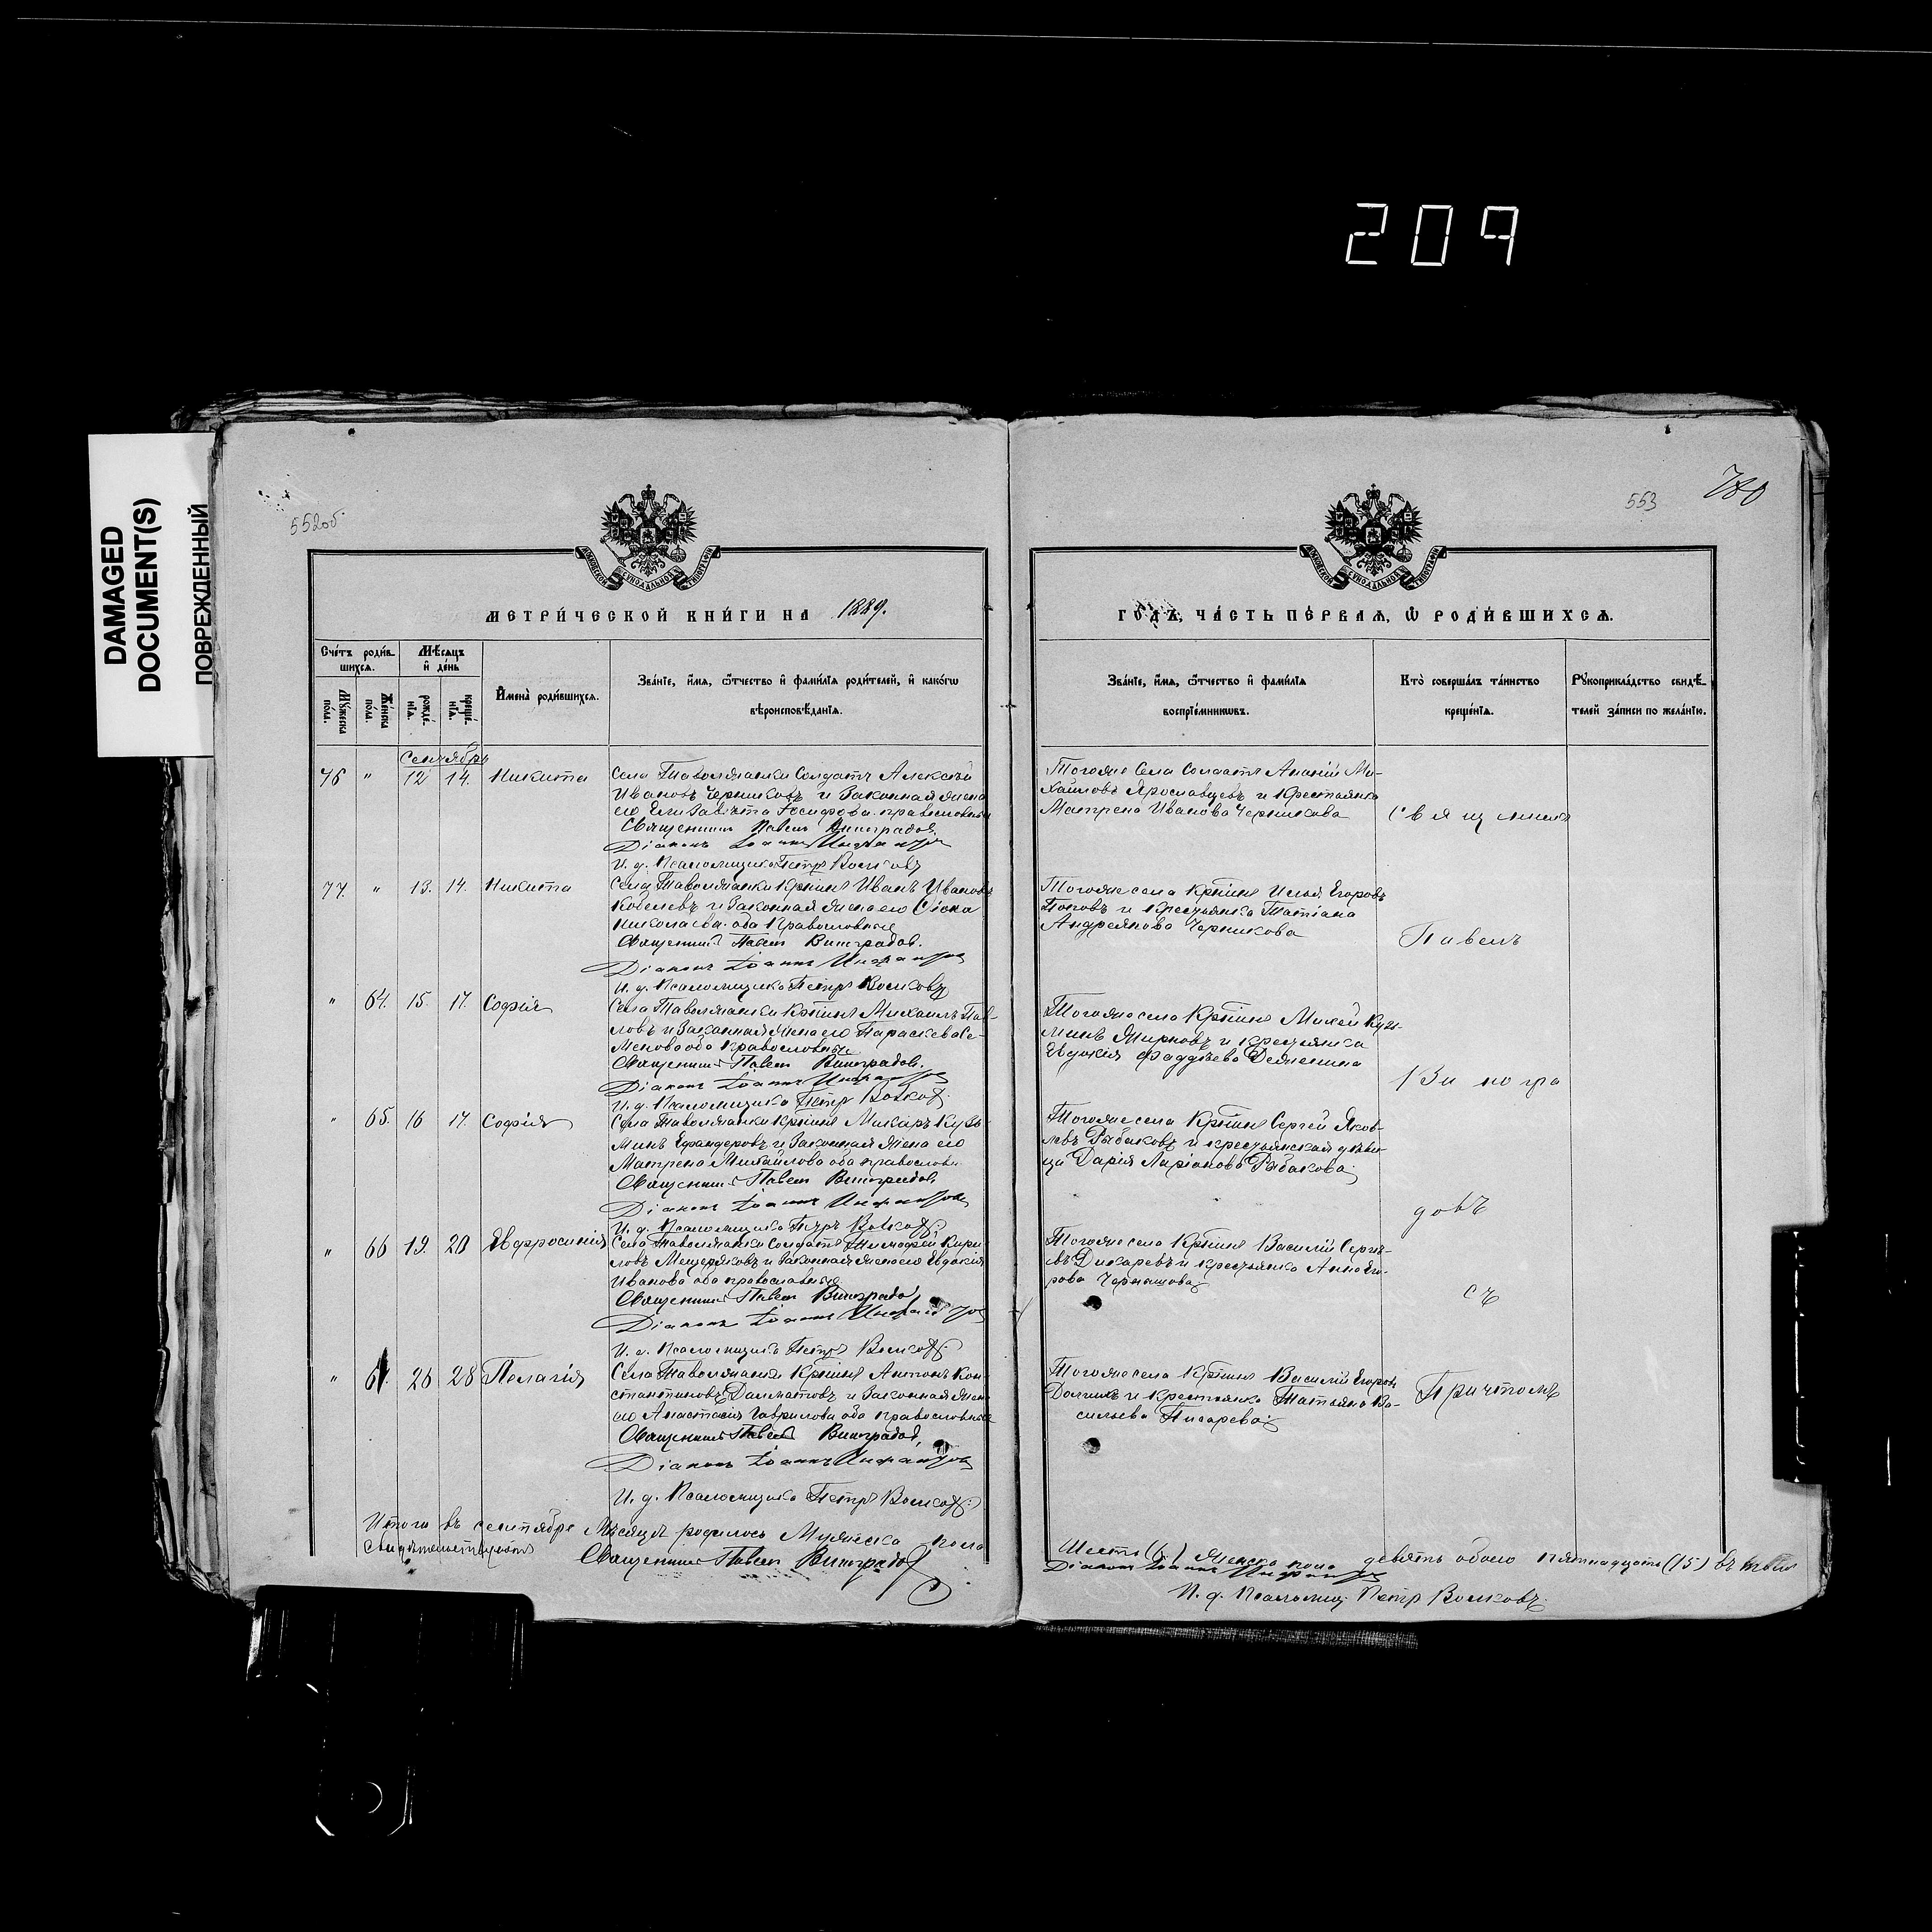 209
DAMAGED
DOCUMENT(S)
ПОВРЕЖДЕННЫЙ
552об.
553
780
МОСКОВСКОЙ СУНОДАЛЬНОЙ ТИПОГРАФІИ
МОСКОВСКОЙ СУНОДАЛЬНОЙ ТИПОГРАФІИ
МЕТРИ́ЧЕСКОЙ КНИ́ГИ НА 1889.
ГО́ДЪ, ЧА́СТЬ ПЕ́РВАѦ, Ѡ҆ РОДИ́ВШИХСѦ.
Сче́тъ роди́в-
шихсѧ.
Мѣ́сѧцъ
и҆ де́нь
Мꙋ́жеска
по́ла.
Же́нска
по́ла.
рожде́-
нїѧ.
креще́-
нїѧ.
И҆мена̀ роди́вшихсѧ.
Зва́нїе, и҆́мѧ, ѻ҆́тчество и҆ фами́лїѧ роди́телей, и҆ како́гѡ
вѣроисповѣ́данїѧ.
Зва́нїе, и҆́мѧ, ѻ҆́тчество и҆ фами́лїѧ
воспрїе́мникѡвъ.
Кто̀ соверша́лъ та́инство
креще́нїѧ.
Рꙋкоприкла́дство свидѣ́-
телей за́писи по жела́нїю.
Сентябрь
76 " 12 14. Никита
Села Таволжанки Солдатъ Алексѣй
Ивановъ Черниковъ и Законная жена
его Елизавѣта Іосифова православные
Священникъ Павелъ Виноградов.
Діаконъ Іоаннъ
И. д. Псаломщика Петръ Волковъ
Тогоже Села Солдатъ Ананій Ми-
хайловъ Ярославцевъ и Крестьянка
Матрена Иванова Черникова
Священникъ
77. " 13. 14. Никита
Села Таволжанки Кр҃тнинъ Иванъ Ивановъ
Кобелевъ и Законная жена его
Николаева оба Православные
Священникъ Павелъ Виноградов.
Діаконъ Іоаннъ
И. д. Псаломщика Петръ Волковъ
Тогоже села Кр҃тнинъ Илья Егоровъ
Поповъ и Крестьянка Татіана
Андреянова Черникова
Павелъ
" 64. 15. 17. Софія
Села Таволжанки Кр҃тнинъ Михаилъ Пав-
ловъ и Законная Жена его Параскева Се-
менова оба Православные
Священникъ Павелъ Виноградов.
Діаконъ Іоаннъ
И. д. Псаломщика Петръ Волков
Тогоже села Кр҃тнинъ Михей Кузь-
минъ Жирновъ и крестьянка
Евдокія Фаддѣева
Виногра
" 65. 16 17. Софія
Села Таволжанки Кр҃тнинъ Макаръ Кузь-
минъ и Законная Жена его
Матрена Михайлова оба православн.
Священникъ Павелъ Виноградов
Діаконъ Іоаннъ
И. д. Псаломщика Петръ Волков
Тогоже села Кр҃тнинъ Сергей Яков-
левъ Рыбаковъ и крестьянская дѣви-
ца Дарія Ларіонова Рыбакова.
довъ
" 66 19. 20 Евфросинія
Села Таволжанки Солдатъ Тимофей Кири-
ловъ Мещеряковъ и Законная жена его Евдокія
Иванова оба православные
Священникъ Павелъ Виноградов
Діаконъ Іоаннъ
И. д. Псаломщика Петръ Волков
Тогоже села Кр҃тнинъ Василій Сергѣ-
евъ Дикаревъ и крестьянка Анна Его-
рова
съ
" 67. 26 28 Пелагія
Села Таволжанки Кр҃тнинъ Антонъ Кон-
стантиновъ Далматовъ и Законная Жена
его Анастасія Гаврилова оба православные
Священникъ Павелъ Виноградов
Діаконъ Іоаннъ
И. д. Псаломщика Петръ Волков
Тогоже села Кр҃тнинъ Василій Егоров
и Крестьянка Татьяна Ва-
сильева Писарева
Причтомъ
Итого въ сентябре Мѣсяцѣ родилось Мужеска пола
Шесть (6) Женска пола девять обоего пятнадцать (15) въ
свидѣтельствуютъ Священникъ Павелъ Виноградов
Діаконъ Іоаннъ
И. д. Псаломщ. Петръ Волковъ.